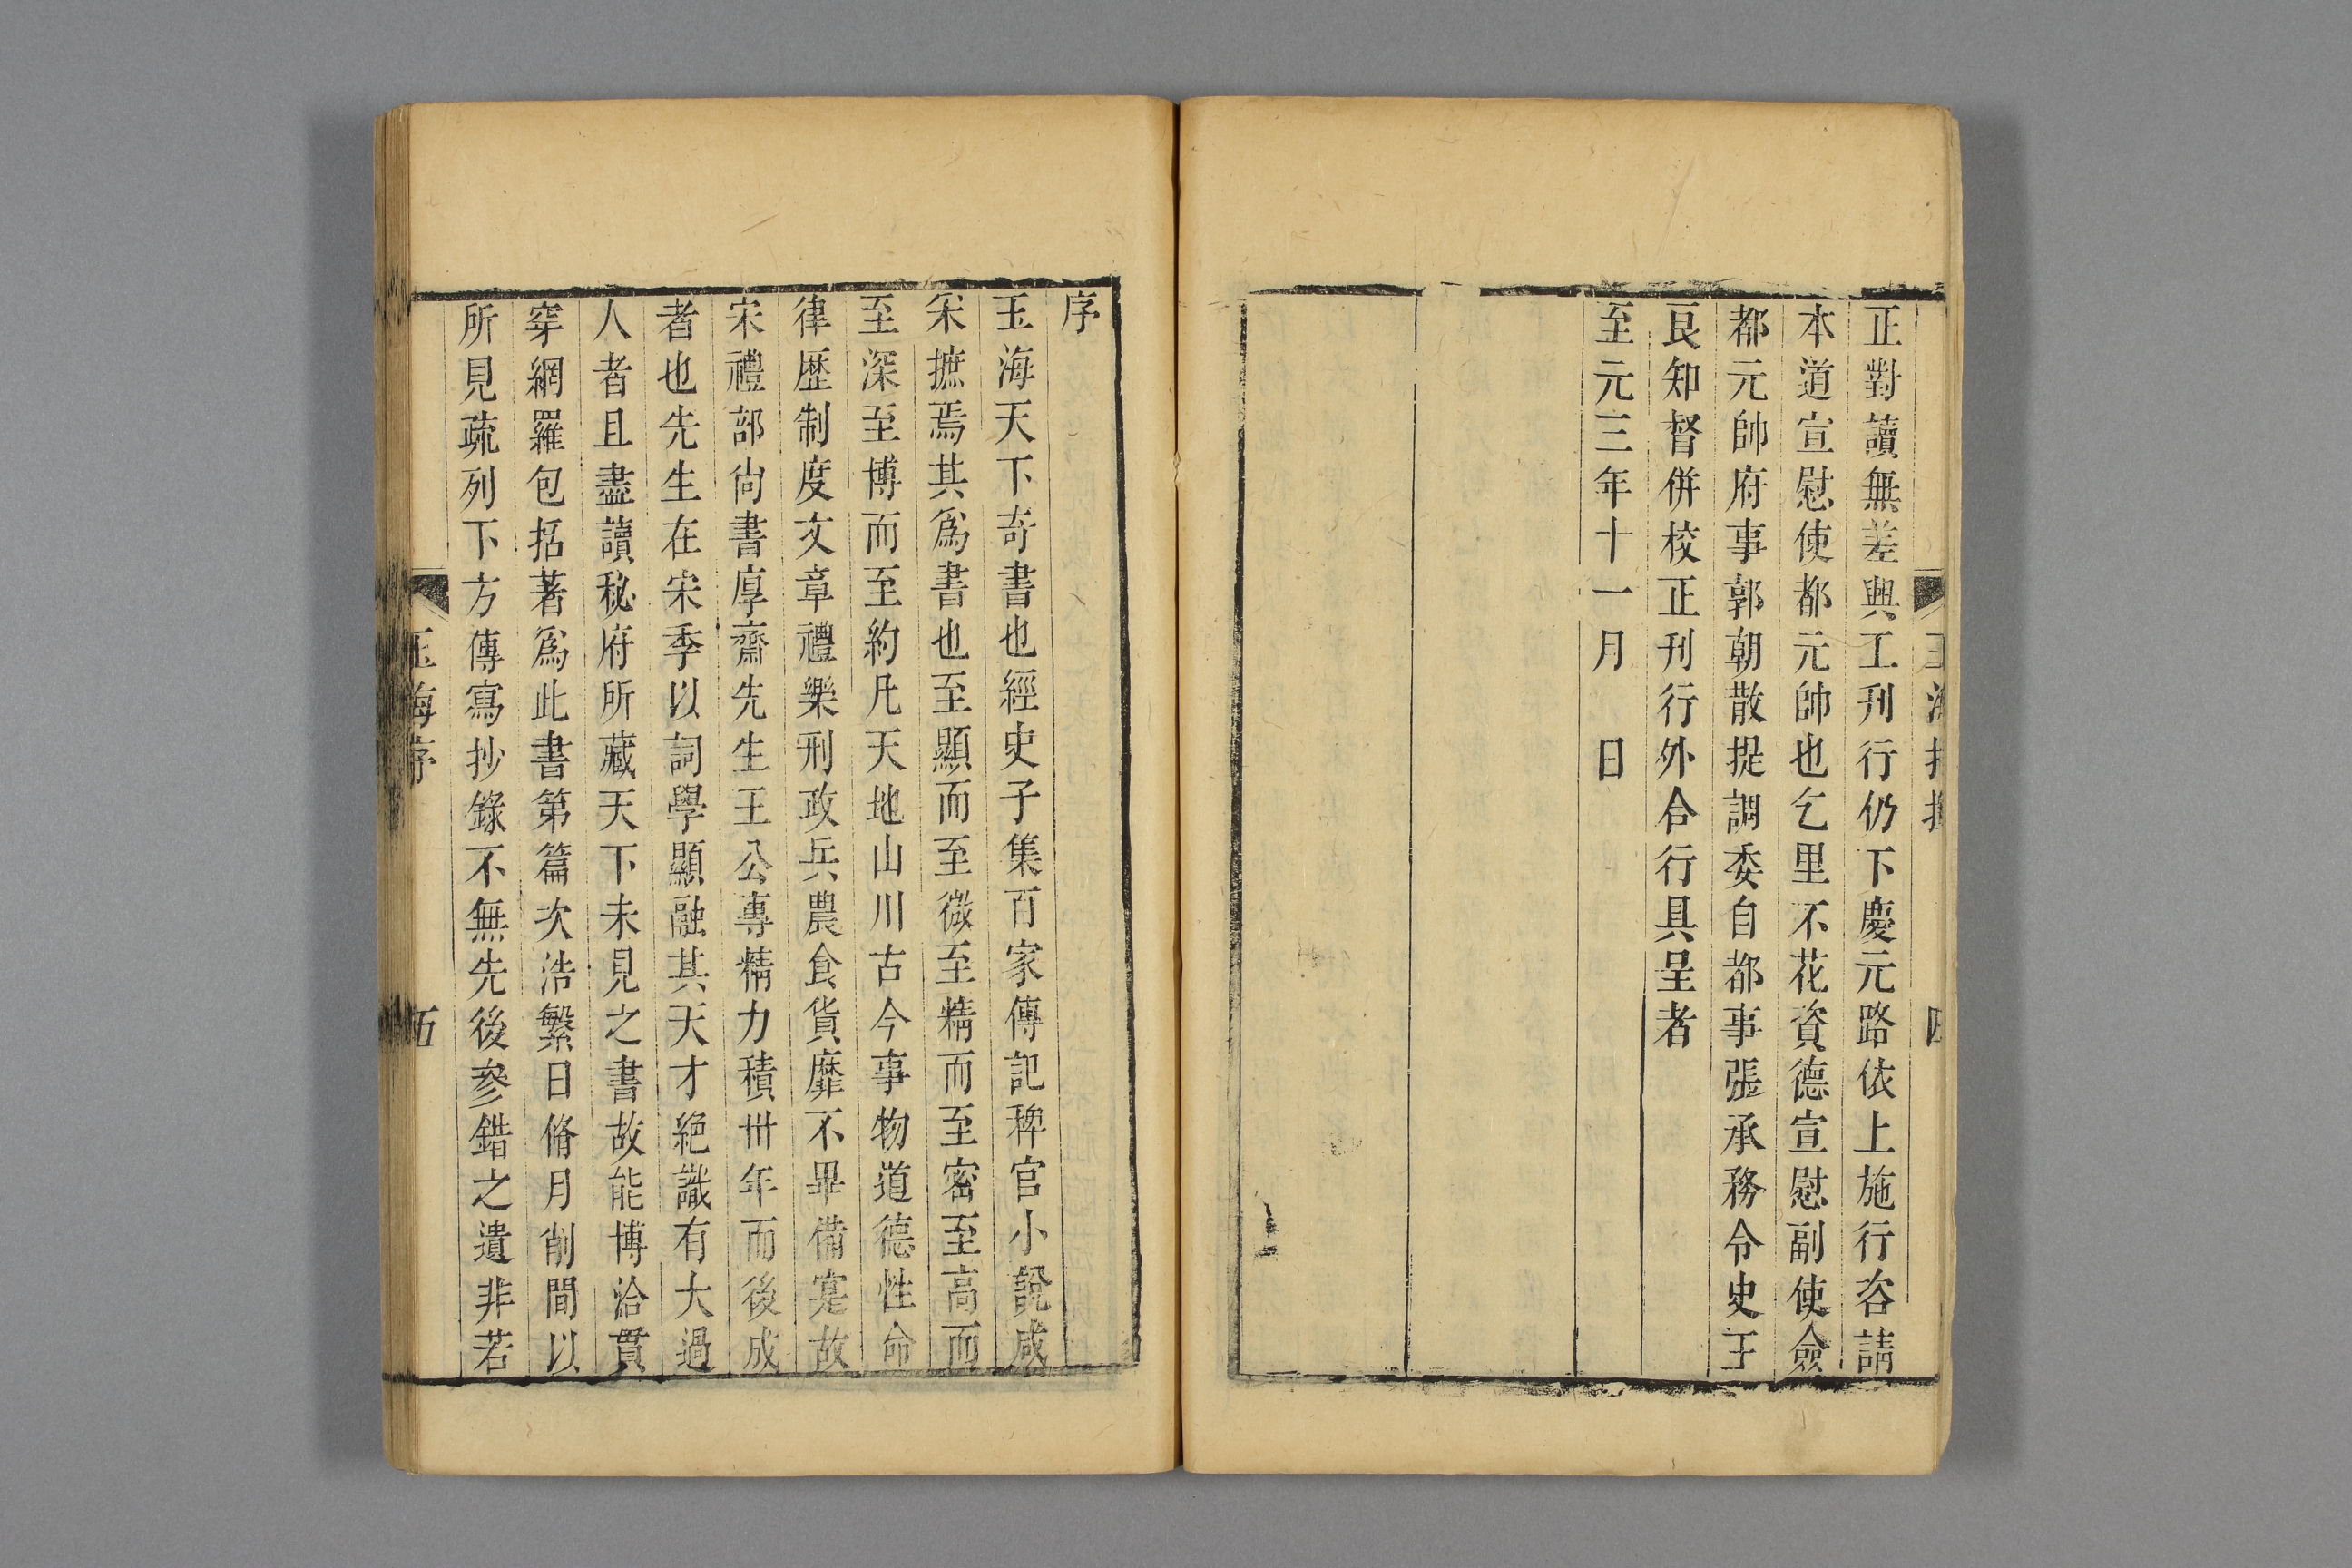 正對讀無差興工刋行仍下慶元路依上施行咨請
本道宣慰使都元帥也乞里不花資德宣慰副使僉
都元帥府事郭朝散提調委自都事張承務令史王
良知督併校正刋行外合行具呈者
至元三年十一月　日
序
玉海天下奇書也經史子集百家傳記稗官小說咸
采摭焉其爲書也至顯而至微至精而至密至高而
至深至博而至約凡天地山川古今事物道德性命
律歷制度文章禮樂刑政兵農食貨靡不畢備寔故
宋禮部尚書厚齋先生王公專精力積卅年而後成
者也先生在宋季以詞學顯融其天才絕識有大過
人者且盡讀秘府所藏天下未見之書故能博洽貫
穿網羅包括著爲此書第篇次浩繁日脩月削間以
所見疏列下方傳寫抄錄不無先後參錯之遺非若
玉海序
五